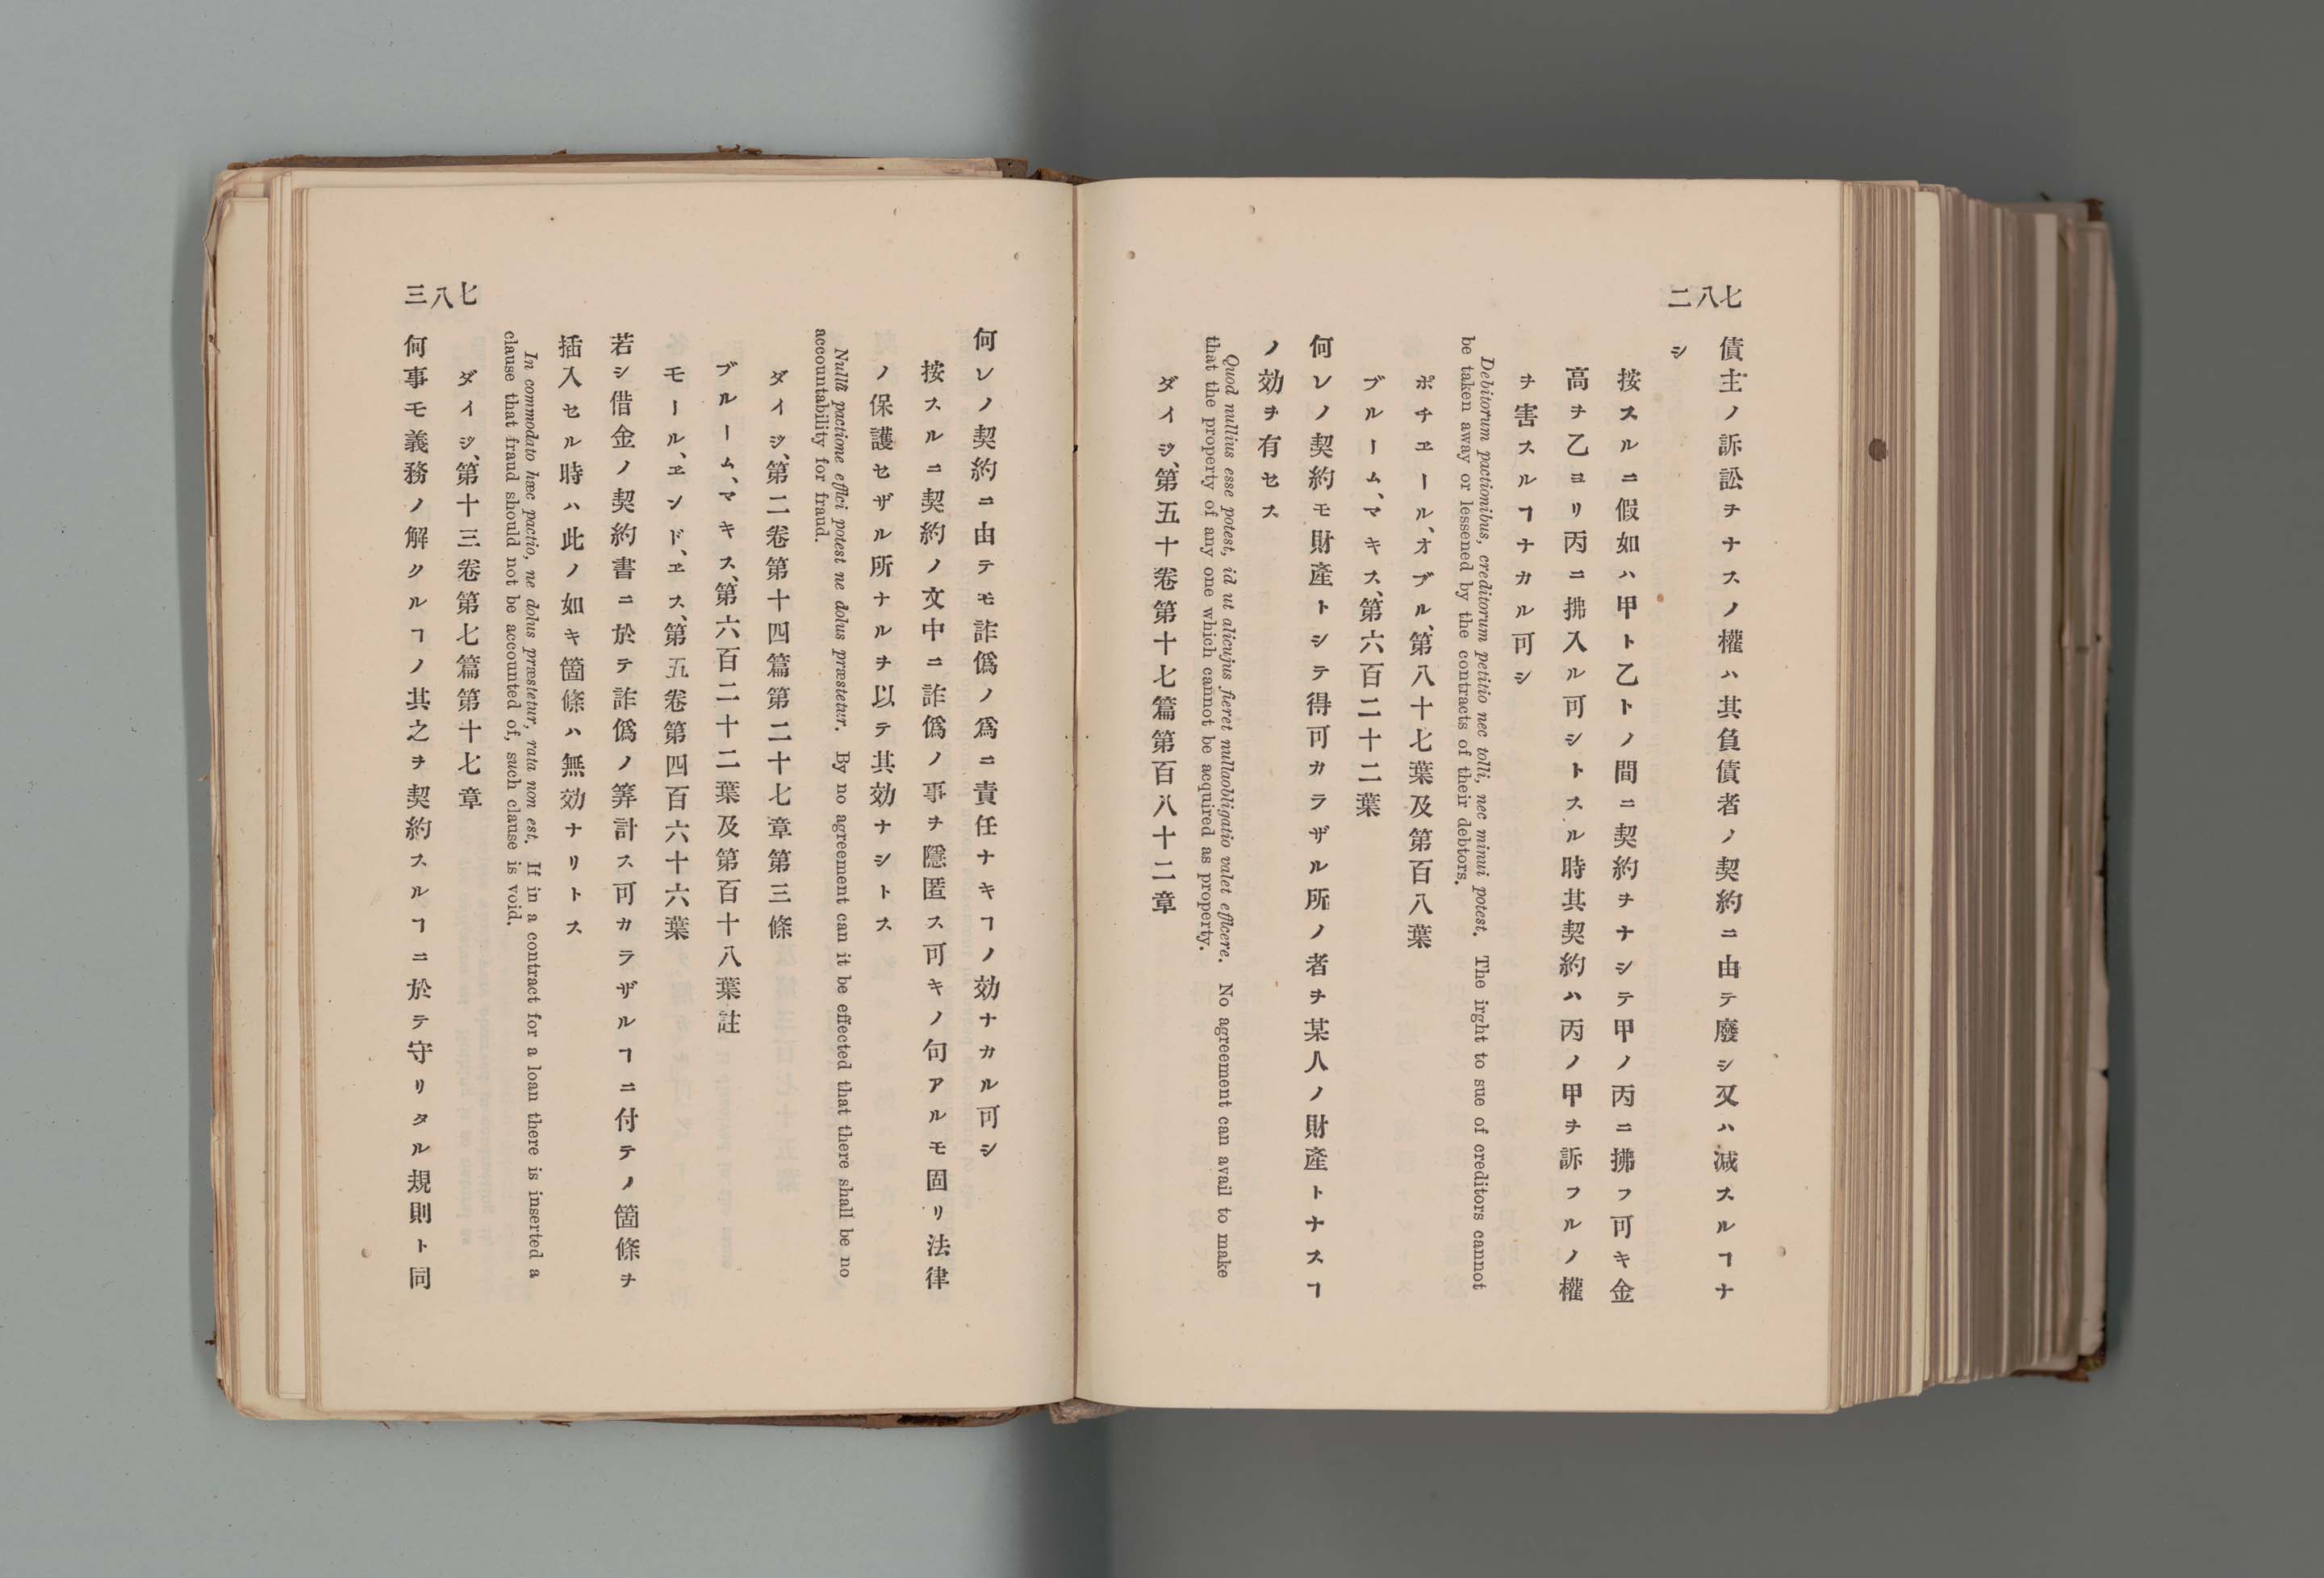 二八七
債主ノ訴訟ヲナスノ權ハ其負債者ノ契約ニ由テ廢シ又ハ減スルヿナ
シ
按スルニ假如ハ甲ト乙トノ間ニ契約ヲナシテ甲ノ丙ニ拂フ可キ金
高ヲ乙ヨリ丙ニ拂入ル可シトスル時其契約ハ丙ノ甲ヲ訴フルノ權
ヲ害スルヿナカル可シ
Debitorum pactionibus, creditorum petitio nec tolli, nec minui potest. The irght to sue of creditors cannot
be taken away or lessened by the contracts of their debtors.
ポチエール、オブル、第八十七葉及第百八葉
ブルーム、マキス、第六百二十二葉
何レノ契約モ財產トシテ得可カラザル所ノ者ヲ某人ノ財產トナスヿ
ノ効ヲ有セス
Quod nullius esse potest, id ut alicujus fieret nullaobligatio valet efficere. No agreement can avail to make
that the property of any one which cannot be acquired as property.
ダイジ、第五十卷第十七篇第百八十二章
三八七
何レノ契約ニ由テモ詐僞ノ爲ニ責任ナキヿノ効ナカル可シ
按スルニ契約ノ文中ニ詐僞ノ事ヲ隱匿ス可キノ句アルモ固リ法律
ノ保護セザル所ナルヲ以テ其効ナシトス
Nullâ pactione effici potest ne dolus præstetur. By no agreement can it be effected that there shall be no
accountability for fraud.
ダイジ、第二卷第十四篇第二十七章第三條
ブルーム、マキス、第六百二十二葉及第百十八葉註
モール、エンド、エス、第五卷第四百六十六葉
若シ借金ノ契約書ニ於テ詐僞ノ筭計ス可カラザルヿニ付テノ箇條ヲ
插入セル時ハ此ノ如キ箇條ハ無効ナリトス
In commodato hæc pactio, ne dolus præstetur, rata non est. If in a contract for a loan there is inserted a
clause that fraud should not be accounted of, such clause is void.
ダイジ、第十三卷第七篇第十七章
何事モ義務ノ解クルヿノ其之ヲ契約スルヿニ於テ守リタル規則ト同